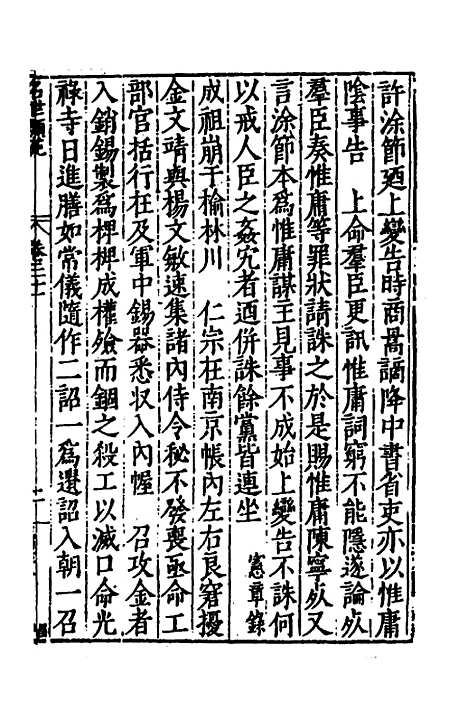 許涂節廼上變告時商暠謫降中書省吏亦以惟庸
陰事告　上命羣臣更訊惟庸詞窮不能隱遂論死
羣臣奏惟庸等罪狀請誅之於是賜惟庸陳寧死又
言涂節本爲惟庸謀主見事不成始上變告不誅何
以戒人臣之姦宄者迺併誅餘黨皆連坐　憲章錄
成祖崩于榆林川　仁宗在南京帳內左右良窘擾
金文靖與楊文敏速集諸內侍令秘不發喪亟命工
部官括行在及軍中錫器悉収入內幄　召攻金者
入銷錫製爲椑椑成權殮而錮之殺工以滅口命光
祿寺日進膳如常儀隨作二詔一爲遺詔入朝一召
卷三十